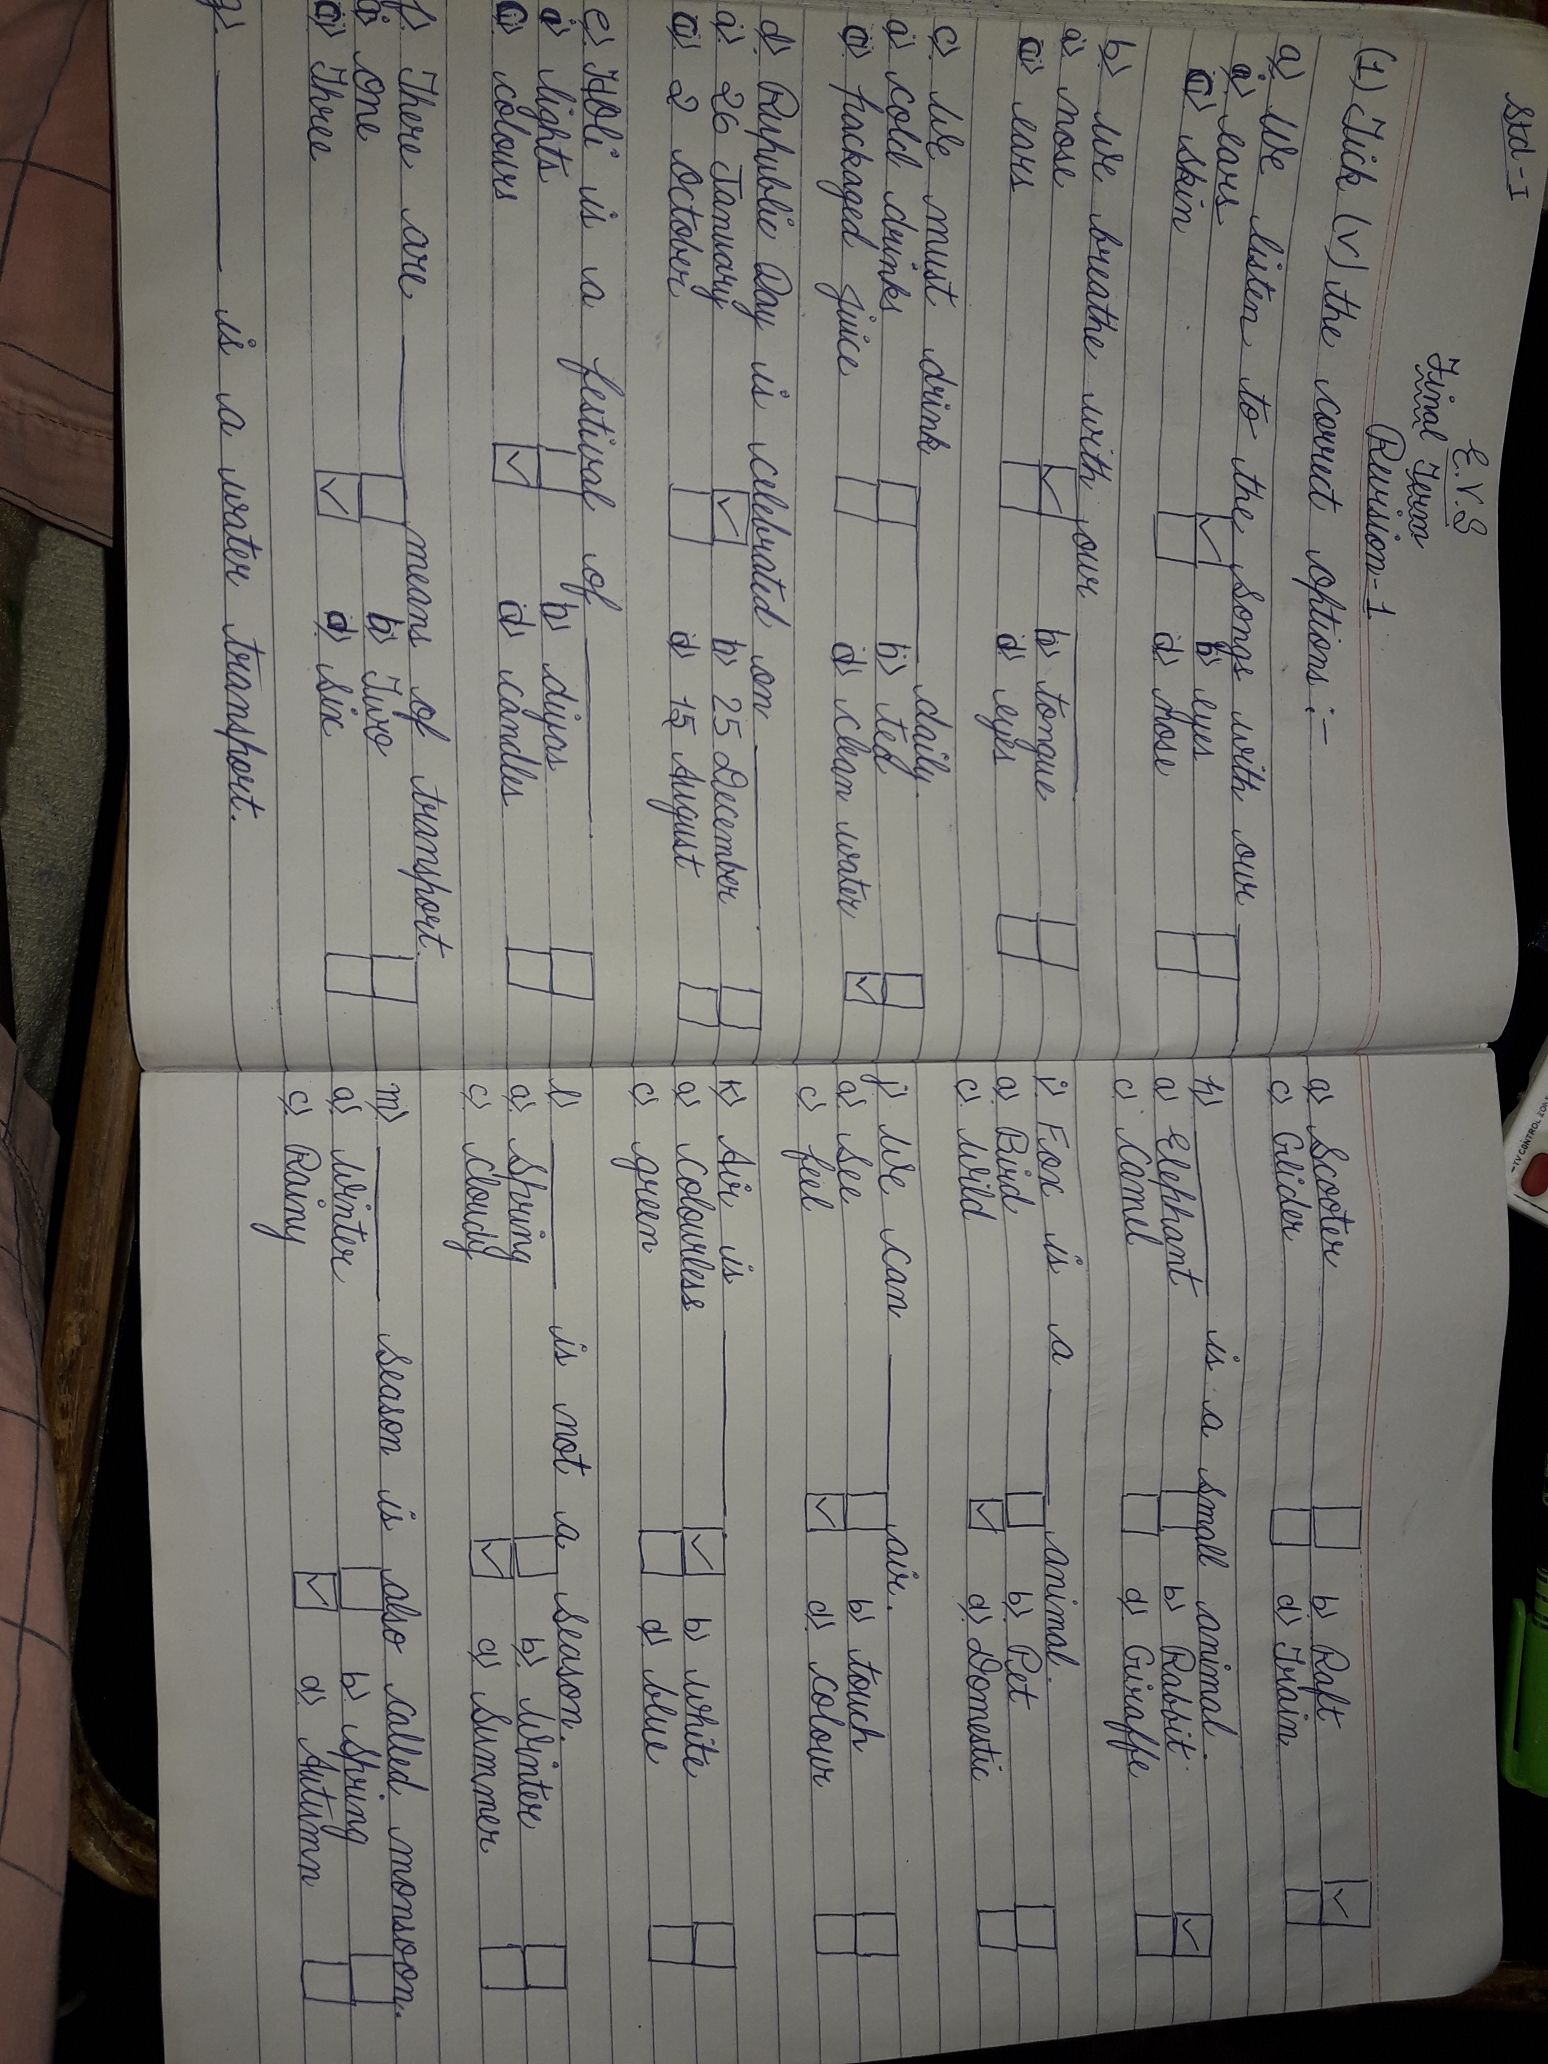 Std-I
E.V.S
Final Term
Revision-1
(1) Tick (✓) the correct options :-
a) We listen to the songs with our
a) ears ✓ b) eyes
c) skin d) nose
b) We breathe with our
a) nose ✓ b) tongue
c) ears d) eyes
c) We must drink ______ daily.
a) cold drinks b) tea
c) packaged juice d) clean water ✓
d) Republic Day is celebrated on ______
a) 26 January ✓ b) 25 December
c) 2 October d) 15 August
e) Holi is a festival of ______.
a) lights b) diyas
c) colours ✓ d) candles
f) There are ______ means of transport.
a) one b) Two
c) Three ✓ d) Six
g) ______ is a water transport.
a) Scooter b) Raft ✓
c) Glider d) Train
h) ______ is a small animal.
a) Elephant b) Rabbit ✓
c) Camel d) Giraffe
i) Fox is a ______ animal.
a) Bird b) Pet
c) Wild ✓ d) Domestic
j) We can ______ air.
a) see b) touch
c) feel ✓ d) colour
k) Air is ______.
a) colourless ✓ b) white
c) green d) blue
l) ______ is not a season.
a) Spring b) Winter
c) Cloudy ✓ d) Summer
m) ______ season is also called monsoon.
a) Winter b) Spring
c) Rainy ✓ d) Autumn